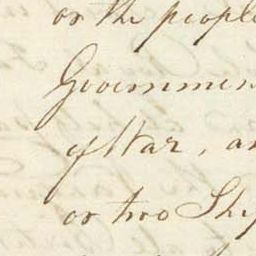 or the people
Governmen
of War, an
or two Ship